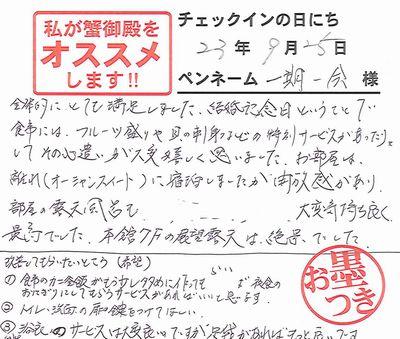 私が蟹御殿を
オススメ
します!!
チェックインの日にち
23年9月25日
ペンネーム 一期一会 様
全体的にとても満足しました。結婚記念日ということで
食事には、フルーツ盛りや貝の刺身などの特別サービスがあったり
して その心遣いが大変嬉しく思いました。お部屋は、
離れ(オーシャンスイート)に宿泊しましたが開放感があり、
部屋の露天風呂も 大変気持ち良く
最高でした。本館7Fの展望露天は、絶景でした。
改善してもらいたいところ(希望)
① 食事の 金額がもう少し 夜食の
おにぎりにしてもらうサービスがあればいいと思います。
② トイレ・浴室の 鍵をつけてほしい。
③ 浴衣のサービスは大変良いですが 足袋があればもっと良いです
お墨つき